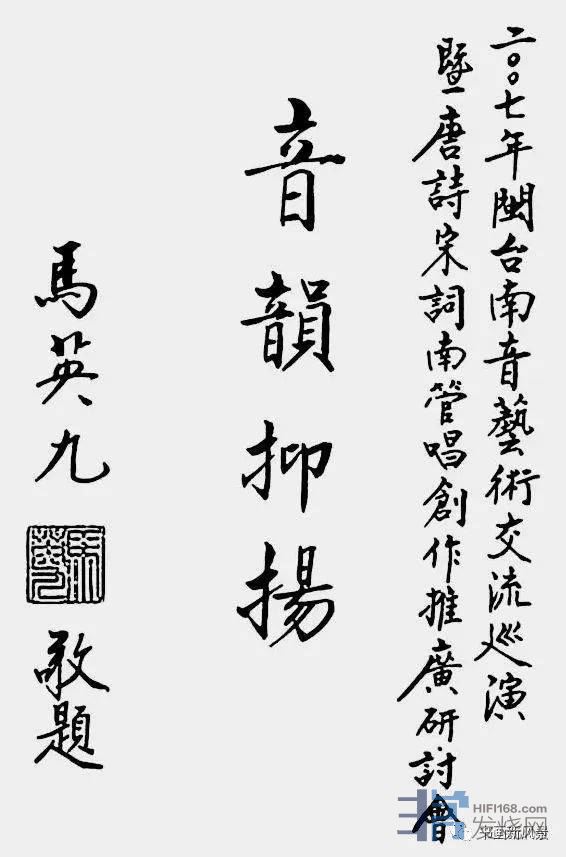 二〇〇七年閩台南音藝術交流巡演
暨唐詩宋詞南管唱創作推廣研討會
音韻抑揚
馬英九
敬題
HIFI168.com
发烧网